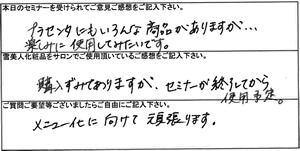 本日のセミナーを受けられてご意見ご感想をご記入下さい。
プラセンタにもいろんな商品がありますが…
楽しみに使用してみたいです。
雪美人化粧品をサロンでご使用頂いているご感想をご記入下さい。
購入ずみでありますが、セミナーが終了してから
使用予定。
ご質問ご要望等ございましたらご自由にご記入下さい。
メニュー化に向けて頑張ります。